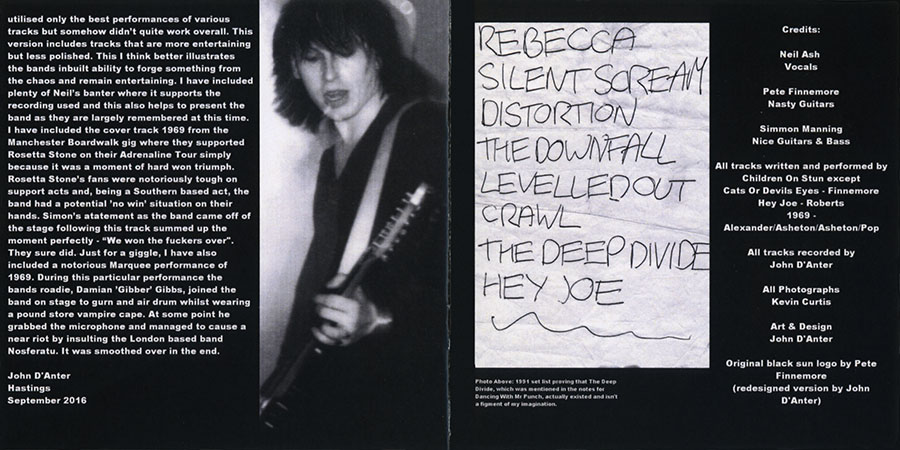 utilised only the best performances of various
tracks but somehow didn't quite work overall. This
version includes tracks that are more entertaining
but less polished. This I think better illustrates
the bands inbuilt ability to forge something from
the chaos and remain entertaining. I have included
plenty of Neil's banter where it supports the
recording used and this also helps to present the
band as they are largely remembered at this time.
I have included the cover track 1969 from the
Manchester Boardwalk gig where they supported
Rosetta Stone on their Adrenaline Tour simply
because it was a moment of hard won triumph.
Rosetta Stone's fans were notoriously tough on
support acts and, being a Southern based act, the
band had a potential 'no win' situation on their
hands. Simon's atatement as the band came off of
the stage following this track summed up the
moment perfectly - “We won the fuckers over".
They sure did. Just for a giggle, I have also
included a notorious Marquee performance of
1969. During this particular performance the
bands roadie, Damian 'Gibber' Gibbs, joined the
band on stage to gurn and air drum whilst wearing
a pound store vampire cape. At some point he
grabbed the microphone and managed to cause a
near riot by insulting the London based band
Nosferatu. It was smoothed over in the end.
John D'Anter
Hastings
September 2016
REBECCA
SILENT SCREAM
DISTORTION
THE DOWNFALL
LEVELLED OUT
CRAWL
THE DEEP DIVIDE
HEY JOE
Photo Above: 1991 set list proving that The Deep
Divide, which was mentioned in the notes for
Dancing With Mr Punch, actually existed and isn't
a figment of my imagination.
Credits:
Neil Ash
Vocals
Pete Finnemore
Nasty Guitars
Simmon Manning
Nice Guitars & Bass
All tracks written and performed by
Children On Stun except
Cats Or Devils Eyes - Finnemore
Hey Joe - Roberts
1969 -
Alexander/Asheton/Asheton/Pop
All tracks recorded by
John D'Anter
All Photographs
Kevin Curtis
Art & Design
John D'Anter
Original black sun logo by Pete
Finnemore
(redesigned version by John
D'Anter)